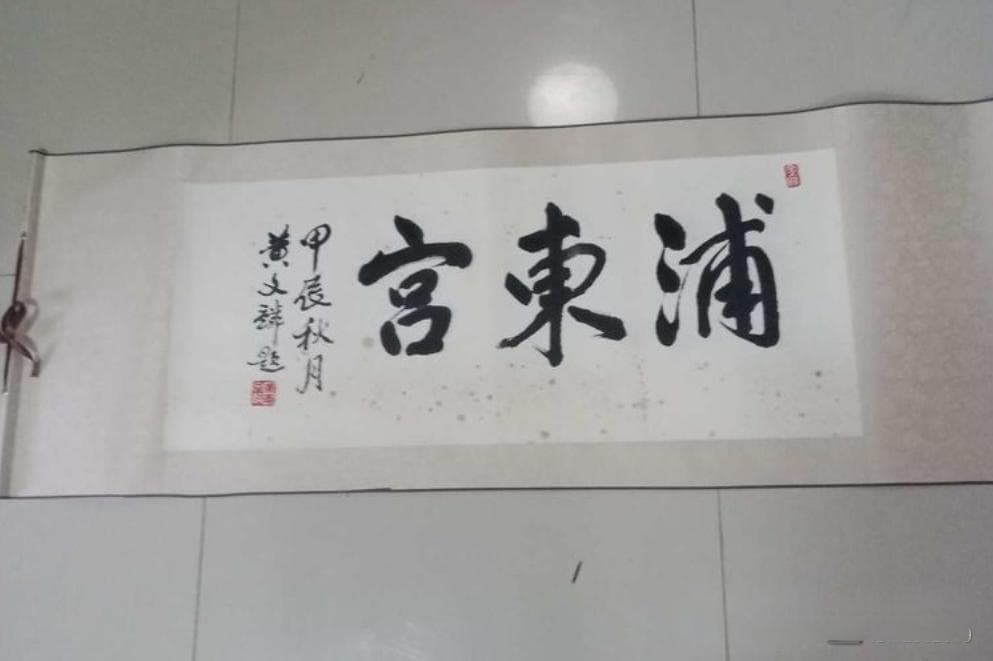 浦東宮
甲辰秋月
黄文題